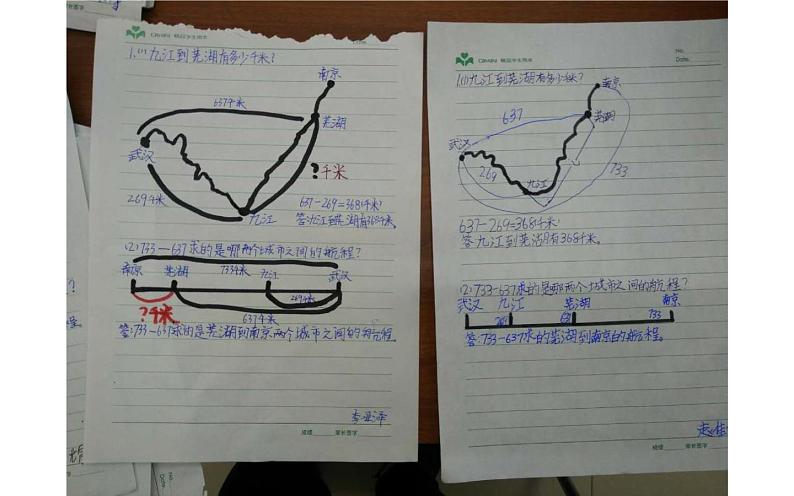 精品学生用本
Date.
1.(1)九江到芜湖有多少千米?
南京
637千米
芜湖
武汉
?千米
269千米
九江
637-269=368(千米)
答:九江到芜湖有368千米。
(2)733-637求的是哪两个城市之间的航程?
南京 芜湖 733千米 九江 武汉
269千米
?千米
637千米
答:733-637求的是芜湖到南京两个城市之间的航程。
成绩 家长签字
精品学生用本
No.
Date.
1.(1)九江到芜湖有多少千米?
南京
637
芜湖
武汉
269
九江
733
637-269=368(千米)
答:九江到芜湖有368千米。
(2)733-637求的是哪两个城市之间的航程?
武汉 九江 芜湖 南京
733
答:733-637求的芜湖到南京的航程。
成绩 家长签字